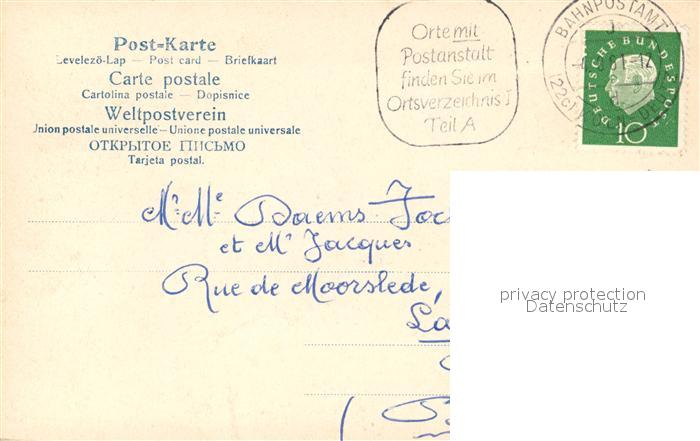 Post=Karte
Levelező-Lap — Post card — Briefkaart
Carte postale
Cartolina postale — Dopisnice
Weltpostverein
Union postale universelle — Unione postale universale
ОТКРЫТОЕ ПИСЬМО
Tarjeta postal.
Orte mit
Postanstalt
finden Sie im
Ortsverzeichnis I
Teil A
BAHNPOSTAMT
DEUTSCHE BUNDESPOST
10
Mr Me Daems
et Mr Jacques
Rue de Moorslede,
privacy protection
Datenschutz